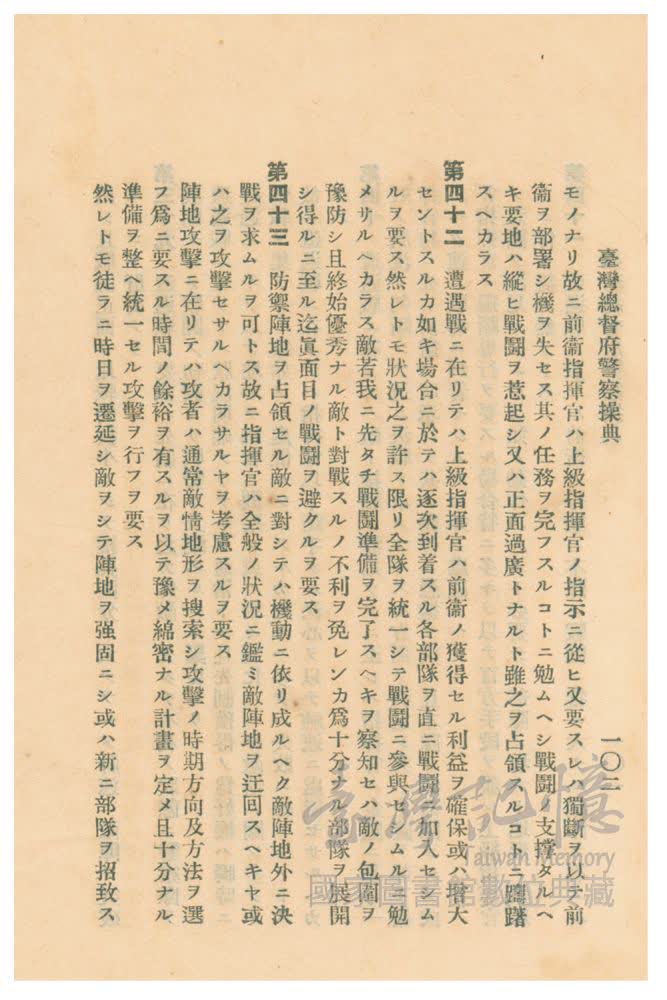 臺灣總督府警察操典
一〇二
モノナリ故ニ前衞指揮官ハ上級指揮官ノ指示ニ從ヒ又要スレハ獨斷ヲ以テ前
衞ヲ部署シ機ヲ失セス其ノ任務ヲ完フスルコトニ勉ムヘシ戰鬪ノ支撐タルヘ
キ要地ハ縱ヒ戰鬪ヲ惹起シ又ハ正面過廣トナルト雖之ヲ占領スルコトニ躊躇
スヘカラス
第四十二 遭遇戰ニ在リテハ上級指揮官ハ前衞ノ獲得セル利益ヲ確保或ハ增大
セントスルカ如キ場合ニ於テハ逐次到着スル各部隊ヲ直ニ戰鬪ニ加入セシム
ルヲ要ス然レトモ狀況之ヲ許ス限リ全隊ヲ統一シテ戰鬪ニ參與セシムルニ勉
メサルヘカラス敵若我ニ先タチ戰鬪準備ヲ完了スヘキヲ察知セハ敵ノ包圍ヲ
豫防シ且終始優秀ナル敵ト對戰スルノ不利ヲ免レンカ爲十分ナル部隊ヲ展開
シ得ルニ至ル迄眞面目ノ戰鬪ヲ避クルヲ要ス
第四十三 防禦陣地ヲ占領セル敵ニ對シテハ機動ニ依リ成ルヘク敵陣地外ニ決
戰ヲ求ムルヲ可トス故ニ指揮官ハ全般ノ狀況ニ鑑ミ敵陣地ヲ迂回スヘキヤ或
ハ之ヲ攻擊セサルヘカラサルヤヲ考慮スルヲ要ス
陣地攻擊ニ在リテハ攻者ハ通常敵情地形ヲ搜索シ攻擊ノ時期方向及方法ヲ選
フ爲ニ要スル時間ノ餘裕ヲ有スルヲ以テ豫メ綿密ナル計畫ヲ定メ且十分ナル
準備ヲ整ヘ統一セル攻擊ヲ行フヲ要ス
然レトモ徒ラニ時日ヲ遷延シ敵ヲシテ陣地ヲ强固ニシ或ハ新ニ部隊ヲ招致ス
臺灣記憶
Taiwan Memory
國家圖書館數位典藏